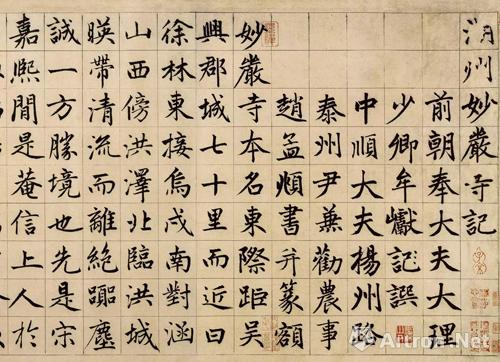 湖州妙嚴寺記
前朝奉大夫大理
少卿牟巘記譔
中順大夫楊州路
泰州尹兼勸農事
趙孟頫書并篆額
妙嚴寺本名東際距吳
興郡城七十里而近曰
徐林東接烏戍南對涵
山西傍洪澤北臨洪城
暎帶清流而離絕囂塵
誠一方勝境也先是宋
嘉熙間是菴信上人於
Artron.Net